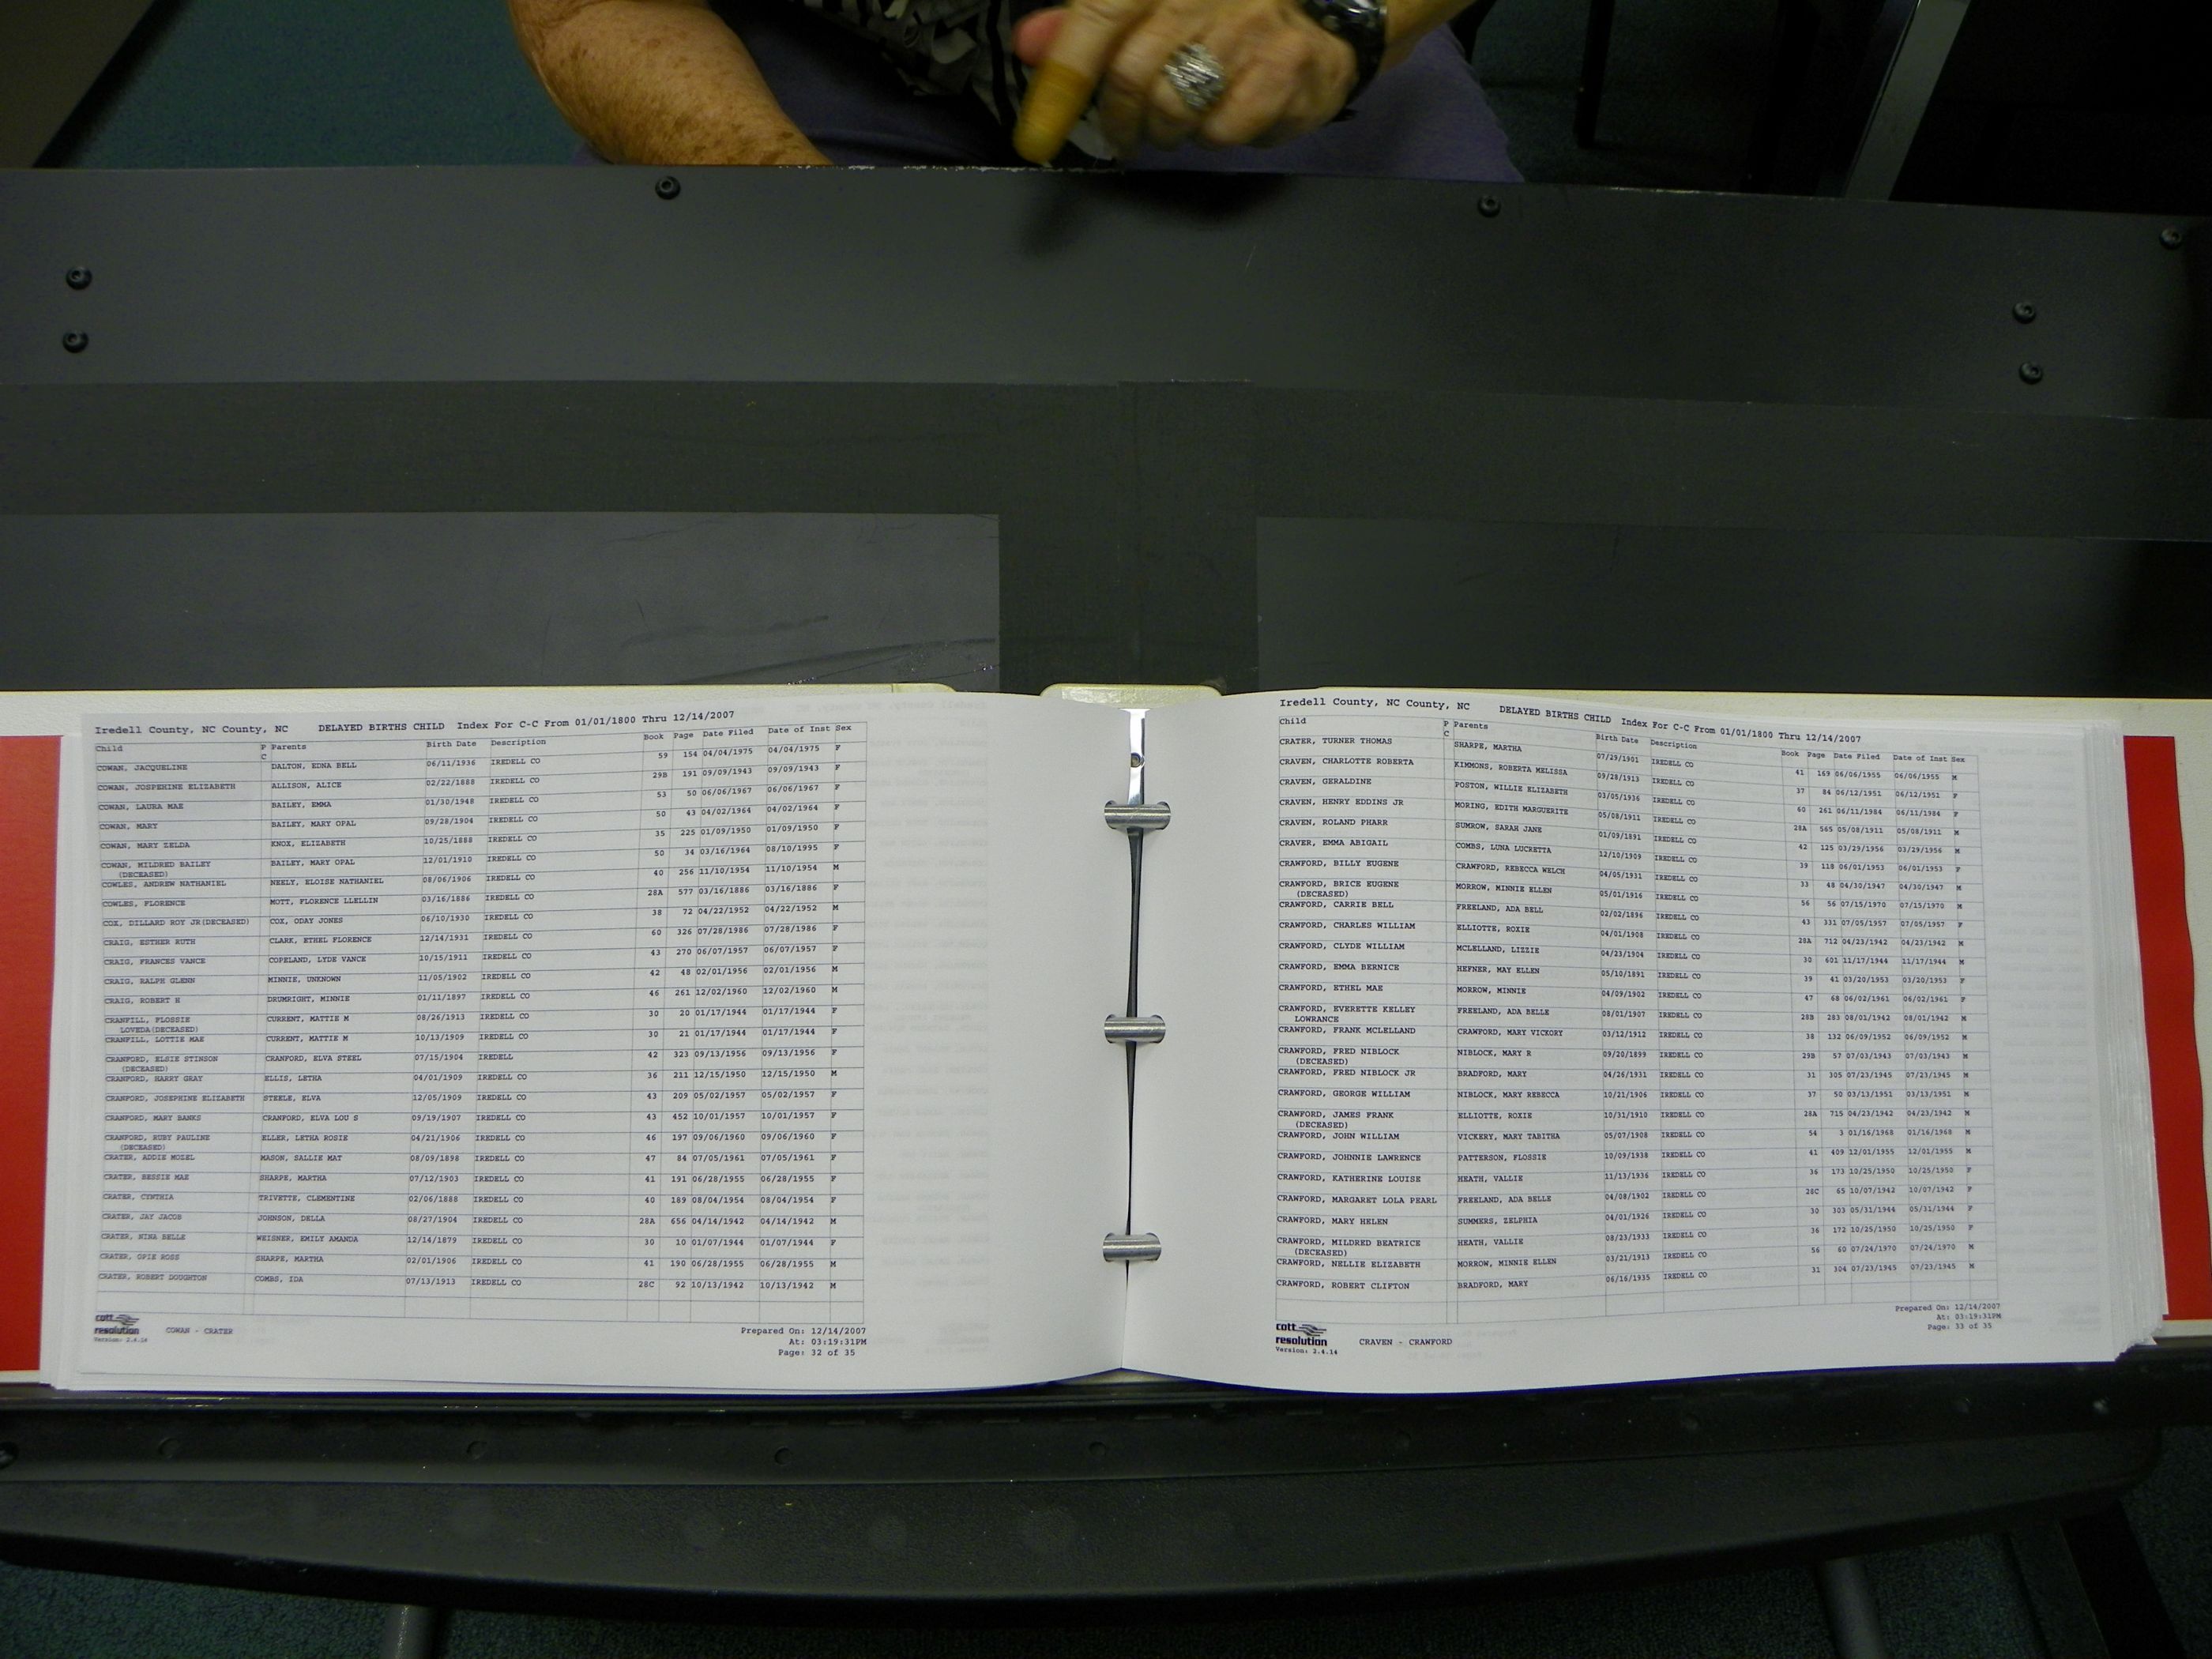 Iredell County, NC County, NC DELAYED BIRTHS CHILD Index For C-C From 01/01/1800 Thru 12/14/2007
Child P C Parents Birth Date Description Book Page Date Filed Date of Inst Sex
COWAN, JACQUELINE DALTON, EDNA BELL 06/11/1936 IREDELL CO 59 154 04/04/1975 04/04/1975 F
COWAN, JOSPEHINE ELIZABETH ALLISON, ALICE 02/22/1888 IREDELL CO 29B 191 09/09/1943 09/09/1943 F
COWAN, LAURA MAE BAILEY, EMMA 01/30/1948 IREDELL CO 53 50 06/06/1967 06/06/1967 F
COWAN, MARY BAILEY, MARY OPAL 09/28/1904 IREDELL CO 50 43 04/02/1964 04/02/1964 F
COWAN, MARY ZELDA KNOX, ELIZABETH 10/25/1888 IREDELL CO 35 225 01/09/1950 01/09/1950 F
COWAN, MILDRED BAILEY BAILEY, MARY OPAL 12/01/1910 IREDELL CO 50 34 03/16/1964 08/10/1995 F
(DECEASED)
COWLES, ANDREW NATHANIEL NEELY, ELOISE NATHANIEL 08/06/1906 IREDELL CO 40 256 11/10/1954 11/10/1954 M
COWLES, FLORENCE MOTT, FLORENCE LLELLIN 03/16/1886 IREDELL CO 28A 577 03/16/1886 03/16/1886 F
COX, DILLARD ROY JR(DECEASED) COX, ODAY JONES 06/10/1930 IREDELL CO 38 72 04/22/1952 04/22/1952 M
CRAIG, ESTHER RUTH CLARK, ETHEL FLORENCE 12/14/1931 IREDELL CO 60 326 07/28/1986 07/28/1986 F
CRAIG, FRANCES VANCE COPELAND, LYDE VANCE 10/15/1911 IREDELL CO 43 270 06/07/1957 06/07/1957 F
CRAIG, RALPH GLENN MINNIE, UNKNOWN 11/05/1902 IREDELL CO 42 48 02/01/1956 02/01/1956 M
CRAIG, ROBERT H DRUMRIGHT, MINNIE 01/11/1897 IREDELL CO 46 261 12/02/1960 12/02/1960 M
CRANFILL, FLOSSIE CURRENT, MATTIE M 08/26/1913 IREDELL CO 30 20 01/17/1944 01/17/1944 F
LOVEDA(DECEASED)
CRANFILL, LOTTIE MAE CURRENT, MATTIE M 10/13/1909 IREDELL CO 30 21 01/17/1944 01/17/1944 F
CRANFORD, ELSIE STINSON CRANFORD, ELVA STEEL 07/15/1904 IREDELL 42 323 09/13/1956 09/13/1956 F
(DECEASED)
CRANFORD, HARRY GRAY ELLIS, LETHA 04/01/1909 IREDELL CO 36 211 12/15/1950 12/15/1950 M
CRANFORD, JOSEPHINE ELIZABETH STEELE, ELVA 12/05/1909 IREDELL CO 43 209 05/02/1957 05/02/1957 F
CRANFORD, MARY BANKS CRANFORD, ELVA LOU S 09/19/1907 IREDELL CO 43 452 10/01/1957 10/01/1957 F
CRANFORD, RUBY PAULINE ELLER, LETHA ROSIE 04/21/1906 IREDELL CO 46 197 09/06/1960 09/06/1960 F
(DECEASED)
CRATER, ADDIE MOZEL MASON, SALLIE MAT 08/09/1898 IREDELL CO 47 84 07/05/1961 07/05/1961 F
CRATER, BESSIE MAE SHARPE, MARTHA 07/12/1903 IREDELL CO 41 191 06/28/1955 06/28/1955 F
CRATER, CYNTHIA TRIVETTE, CLEMENTINE 02/06/1888 IREDELL CO 40 189 08/04/1954 08/04/1954 F
CRATER, JAY JACOB JOHNSON, DELLA 08/27/1904 IREDELL CO 28A 656 04/14/1942 04/14/1942 M
CRATER, NINA BELLE WEISNER, EMILY AMANDA 12/14/1879 IREDELL CO 30 10 01/07/1944 01/07/1944 F
CRATER, OPIE ROSS SHARPE, MARTHA 02/01/1906 IREDELL CO 41 190 06/28/1955 06/28/1955 M
CRATER, ROBERT DOUGHTON COMBS, IDA 07/13/1913 IREDELL CO 28C 92 10/13/1942 10/13/1942 M
cott
resolution
Version: 2.4.14
COWAN - CRATER
Prepared On: 12/14/2007
At: 03:19:31PM
Page: 32 of 35
Iredell County, NC County, NC DELAYED BIRTHS CHILD Index For C-C From 01/01/1800 Thru 12/14/2007
Child P C Parents Birth Date Description Book Page Date Filed Date of Inst Sex
CRATER, TURNER THOMAS SHARPE, MARTHA 07/29/1901 IREDELL CO 41 169 06/06/1955 06/06/1955 M
CRAVEN, CHARLOTTE ROBERTA KIMMONS, ROBERTA MELISSA 09/28/1913 IREDELL CO 37 84 06/12/1951 06/12/1951 F
CRAVEN, GERALDINE POSTON, WILLIE ELIZABETH 03/05/1936 IREDELL CO 60 261 06/11/1984 06/11/1984 F
CRAVEN, HENRY EDDINS JR MORING, EDITH MARGUERITE 05/08/1911 IREDELL CO 28A 565 05/08/1911 05/08/1911 M
CRAVEN, ROLAND PHARR SUMROW, SARAH JANE 01/09/1891 IREDELL CO 42 125 03/29/1956 03/29/1956 M
CRAVER, EMMA ABIGAIL COMBS, LUNA LUCRETTA 12/10/1909 IREDELL CO 39 118 06/01/1953 06/01/1953 F
CRAWFORD, BILLY EUGENE CRAWFORD, REBECCA WELCH 04/05/1931 IREDELL CO 33 48 04/30/1947 04/30/1947 M
CRAWFORD, BRICE EUGENE MORROW, MINNIE ELLEN 05/01/1916 IREDELL CO 56 56 07/15/1970 07/15/1970 M
(DECEASED)
CRAWFORD, CARRIE BELL FREELAND, ADA BELL 02/02/1896 IREDELL CO 43 331 07/05/1957 07/05/1957 F
CRAWFORD, CHARLES WILLIAM ELLIOTTE, ROXIE 04/01/1908 IREDELL CO 28A 712 04/23/1942 04/23/1942 M
CRAWFORD, CLYDE WILLIAM MCLELLAND, LIZZIE 04/23/1904 IREDELL CO 30 601 11/17/1944 11/17/1944 M
CRAWFORD, EMMA BERNICE HEFNER, MAY ELLEN 05/10/1891 IREDELL CO 39 41 03/20/1953 03/20/1953 F
CRAWFORD, ETHEL MAE MORROW, MINNIE 04/09/1902 IREDELL CO 47 68 06/02/1961 06/02/1961 F
CRAWFORD, EVERETTE KELLEY FREELAND, ADA BELLE 08/01/1907 IREDELL CO 28B 283 08/01/1942 08/01/1942 M
LOWRANCE
CRAWFORD, FRANK MCLELLAND CRAWFORD, MARY VICKORY 03/12/1912 IREDELL CO 38 132 06/09/1952 06/09/1952 M
CRAWFORD, FRED NIBLOCK NIBLOCK, MARY R 09/20/1899 IREDELL CO 29B 57 07/03/1943 07/03/1943 M
(DECEASED)
CRAWFORD, FRED NIBLOCK JR BRADFORD, MARY 04/26/1931 IREDELL CO 31 305 07/23/1945 07/23/1945 M
CRAWFORD, GEORGE WILLIAM NIBLOCK, MARY REBECCA 10/21/1906 IREDELL CO 37 50 03/13/1951 03/13/1951 M
CRAWFORD, JAMES FRANK ELLIOTTE, ROXIE 10/31/1910 IREDELL CO 28A 715 04/23/1942 04/23/1942 M
(DECEASED)
CRAWFORD, JOHN WILLIAM VICKERY, MARY TABITHA 05/07/1908 IREDELL CO 54 3 01/16/1968 01/16/1968 M
CRAWFORD, JOHNNIE LAWRENCE PATTERSON, FLOSSIE 10/09/1938 IREDELL CO 41 409 12/01/1955 12/01/1955 M
CRAWFORD, KATHERINE LOUISE HEATH, VALLIE 11/13/1936 IREDELL CO 36 173 10/25/1950 10/25/1950 F
CRAWFORD, MARGARET LOLA PEARL FREELAND, ADA BELLE 04/08/1902 IREDELL CO 28C 65 10/07/1942 10/07/1942 F
CRAWFORD, MARY HELEN SUMMERS, ZELPHIA 04/01/1926 IREDELL CO 30 303 05/31/1944 05/31/1944 F
CRAWFORD, MILDRED BEATRICE HEATH, VALLIE 08/23/1933 IREDELL CO 36 172 10/25/1950 10/25/1950 F
(DECEASED)
CRAWFORD, NELLIE ELIZABETH MORROW, MINNIE ELLEN 03/21/1913 IREDELL CO 56 60 07/24/1970 07/24/1970 M
CRAWFORD, ROBERT CLIFTON BRADFORD, MARY 06/16/1935 IREDELL CO 31 304 07/23/1945 07/23/1945 M
cott
resolution
Version: 2.4.14
CRAVEN - CRAWFORD
Prepared On: 12/14/2007
At: 03:19:31PM
Page: 33 of 35